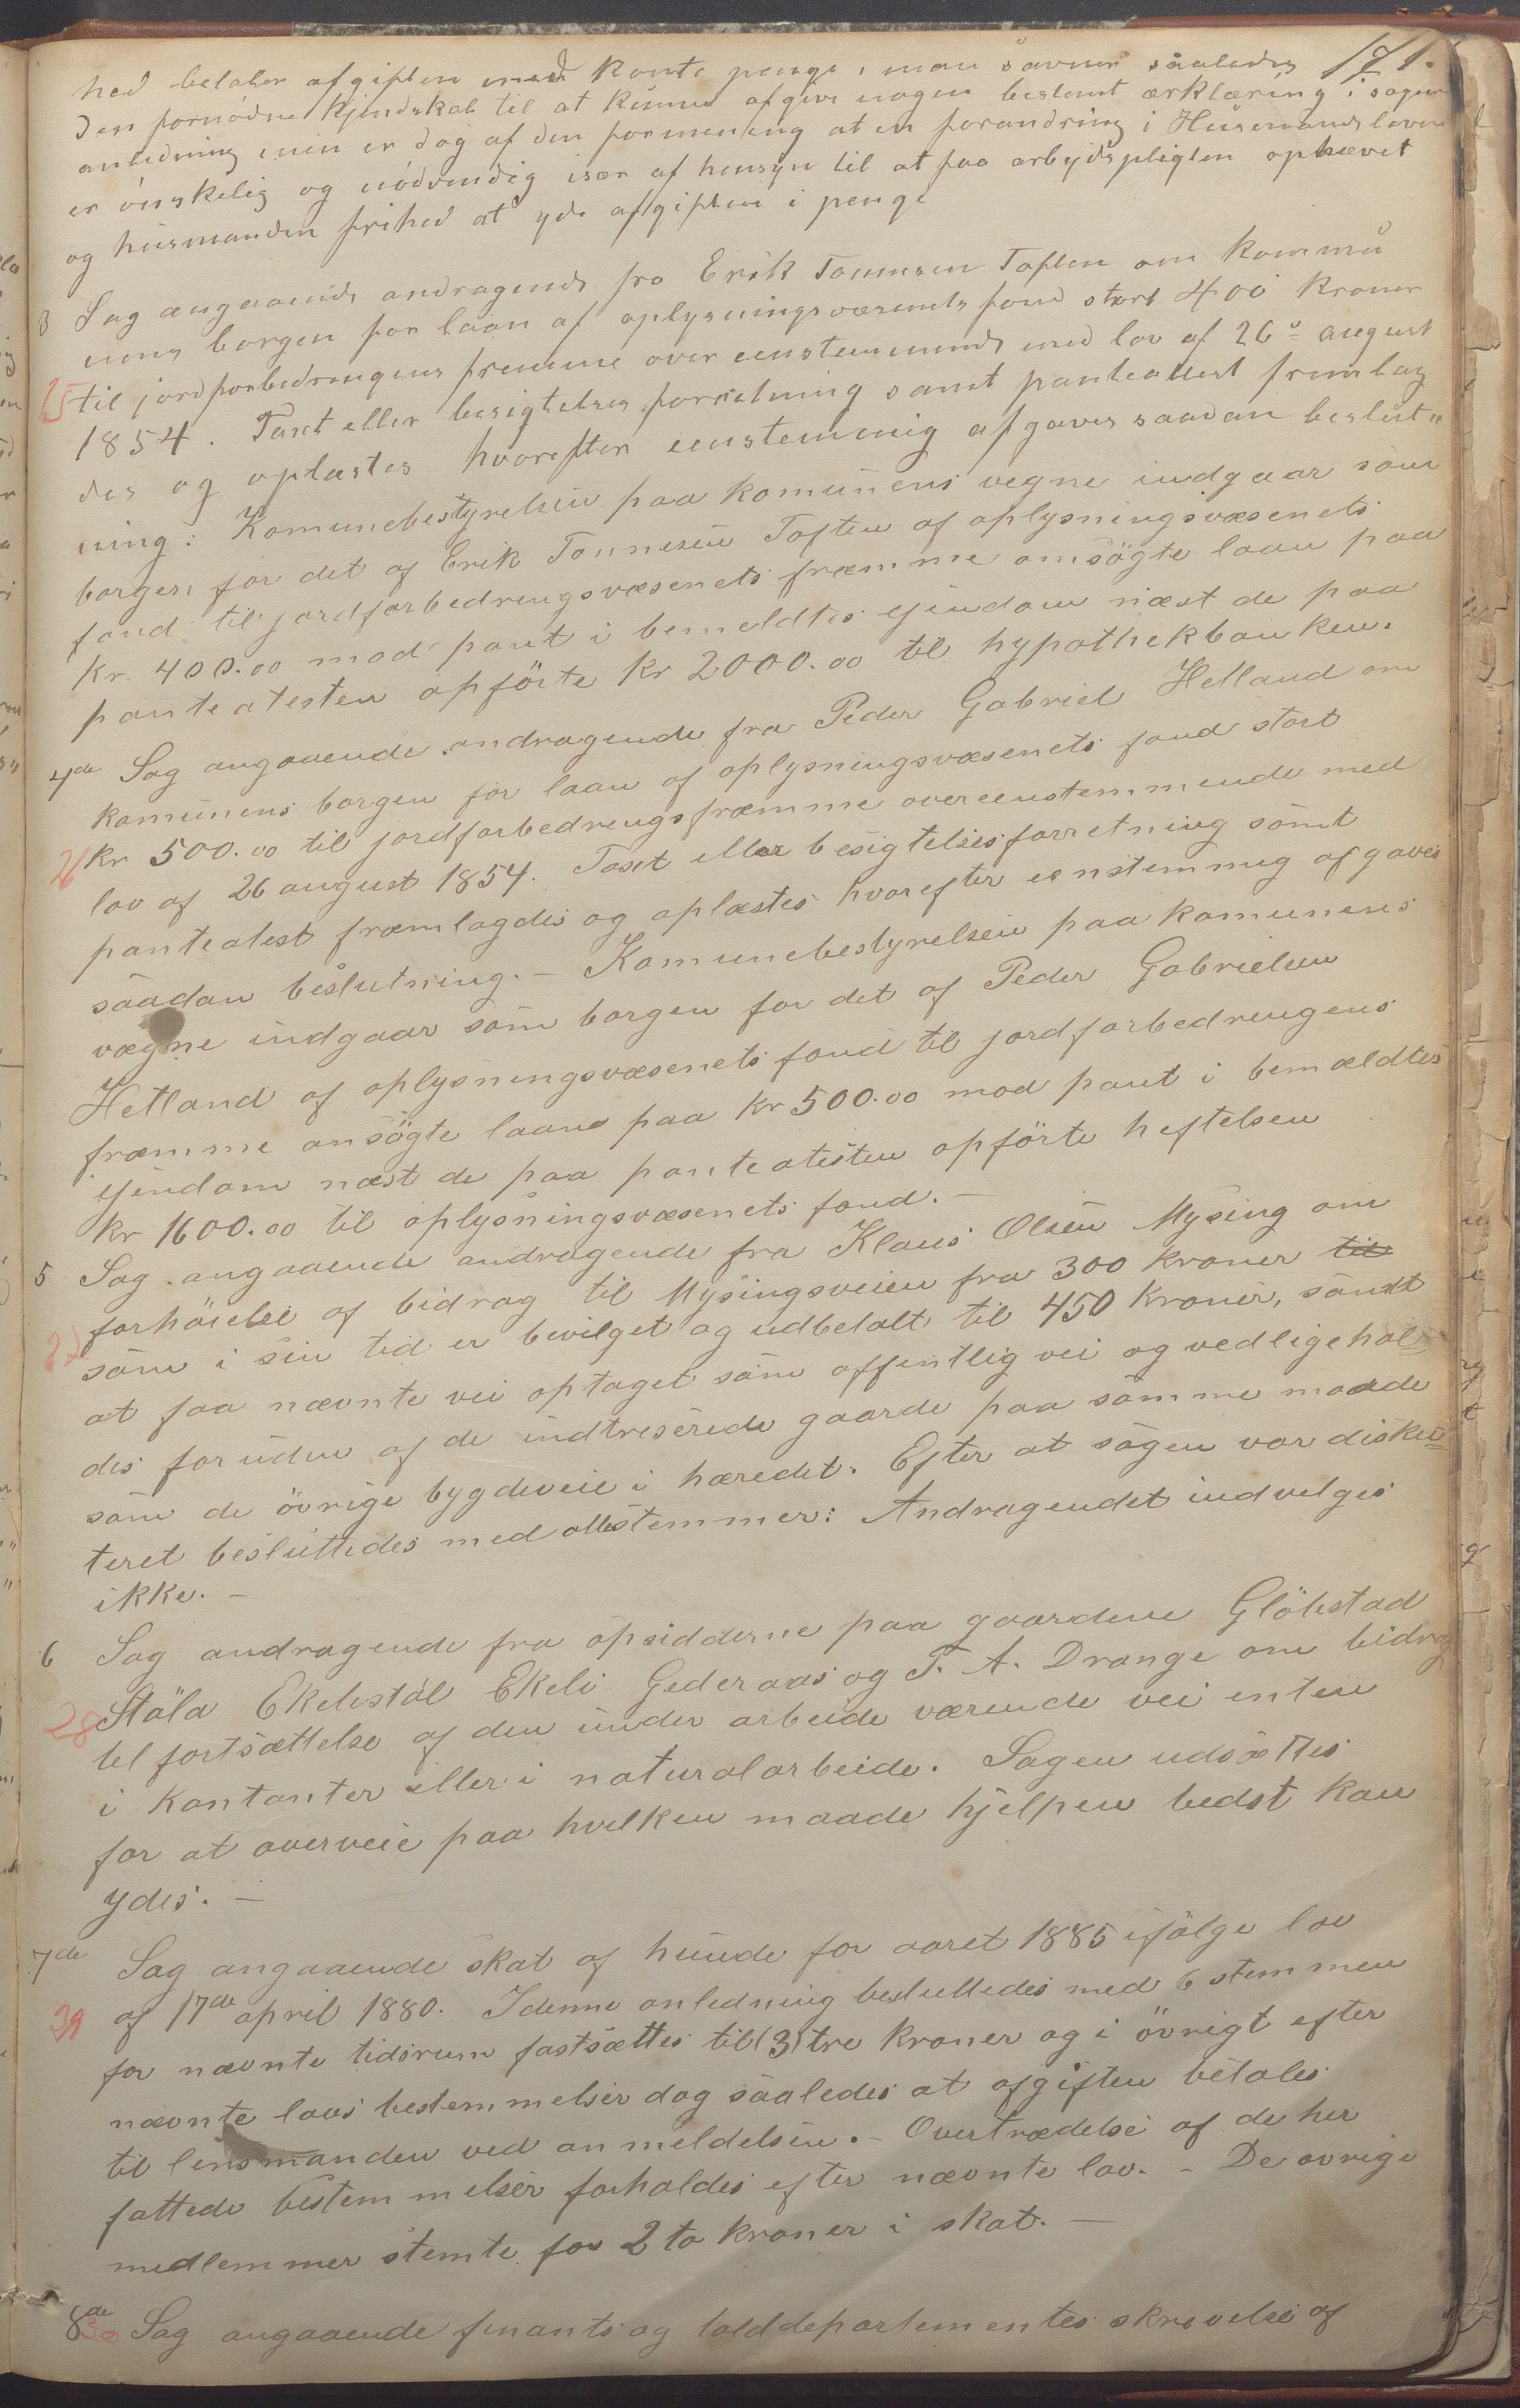 171.
hed betaler afgiften med Konto penge, man savner saaledes
den fornödne Kjendskab til at kunne afgive nogen bestemt ærklæring i sagens
anledning, min er dog af den formening at en forandring i Husmandsloven
er önskelig og nödvendig især af hensyn til at faa arbejdspligten ophævet
og husmanden frihed at yde afgiften i penge
3 Sag angaaende andragende fra Erik Tonnesen Toften om Kommu
nens borgen for laan af oplysningsvæsenets fond stort 400 Kroner
25 til jordforbedringens fremme over eenstemmende med lov af 26de august
1854. Taxt eller besigtelses forretning samt panteattest fremlag
des og oplæstes hvorefter eenstemmig afgaves saadan beslut„
ning: Komunebestyrelsen paa komunens vegne indgaar som
borgen for det af Erik Tonnesen Toften af oplysningsvæsenets
fond til jordforbedrengsvæsenets fræmme ansögte laan paa
Kr. 400.00 mod pant i bemeldtes Ejendom næst de paa
panteatesten opförte Kr 2000.00 til hypothekbanken.
4de Sag angaaende andragende fra Peder Gabriel Hetland om
komunens borgen for laan af oplysningsvæsenets fond stort
26 Kr 500.00 til jordforbedrengsfræmme overeenstemmende med
lov af 26 august 1854. Taxt eller besigtelsesforretning samt
panteatest fræmlagdes og oplæstes hvorefter eenstemmig afgaves
saadan beslutning. – Komunebestyrelsen paa komunens
vægne indgaar som borgen for det af Peder Gabrielsen
Hetland af oplysningsvæsenets fond til jordforbedrengens
fræmme ansögte laan paa Kr 500.00 mod pant i bemældtes
Ejendom næst de paa panteatesten opförte heftelsen
Kr 1600.00 til oplysningsvæsenets fond. –
5 Sag angaaende andragende fra Klaus Olsen Mysing om
forhöielse af bidrag til Mysingsveien fra 300 kroner til
27 som i sin tid er bevilget og udbetalt til 450 Kroner, samt
at faa nævnte vei optaget som offentlig vei og vedligehol-
des foruden af de indtreserede gaarde paa samme maade
som de övrige bygdeveie i hæredet. Efter at sagen var disku=
teret besluttedes med alle stemmer: Andragendet indvelges
ikke. –
6 Sag andragende fra opsidderne paa gaardene Glöbstad
28 Stöla Ekelistöl Ekeli Gederaas og T. A. Drange om bidrag
tel fortsættelse af den under arbeide værende vei enten
i Kontanter eller i naturalarbeide. Sagen udsættes
for at overveie paa hvilken maade hjelpen bedst kan
ydes. –
7de Sag angaaende skat af hunde for aaret 1885 ifölge lov
29 af 17de april 1880. I denne anledning besluttedes med 6 stemmer
for nævnte tidsrum fastsættes til (3) tre kroner og i övrigt efter
nævnte lovs bestemmelser dog saaledes at afgiften betales
til lensmanden ved anmeldelsen. – Overtrædelse af de her
fattede bestemmelser forholdes efter nævnte lov. – De ovrige
medlemmer stemte for 2 to kroner i skat. –
8de 30 Sag angaaende finants og tolddepartementes skrevelse af